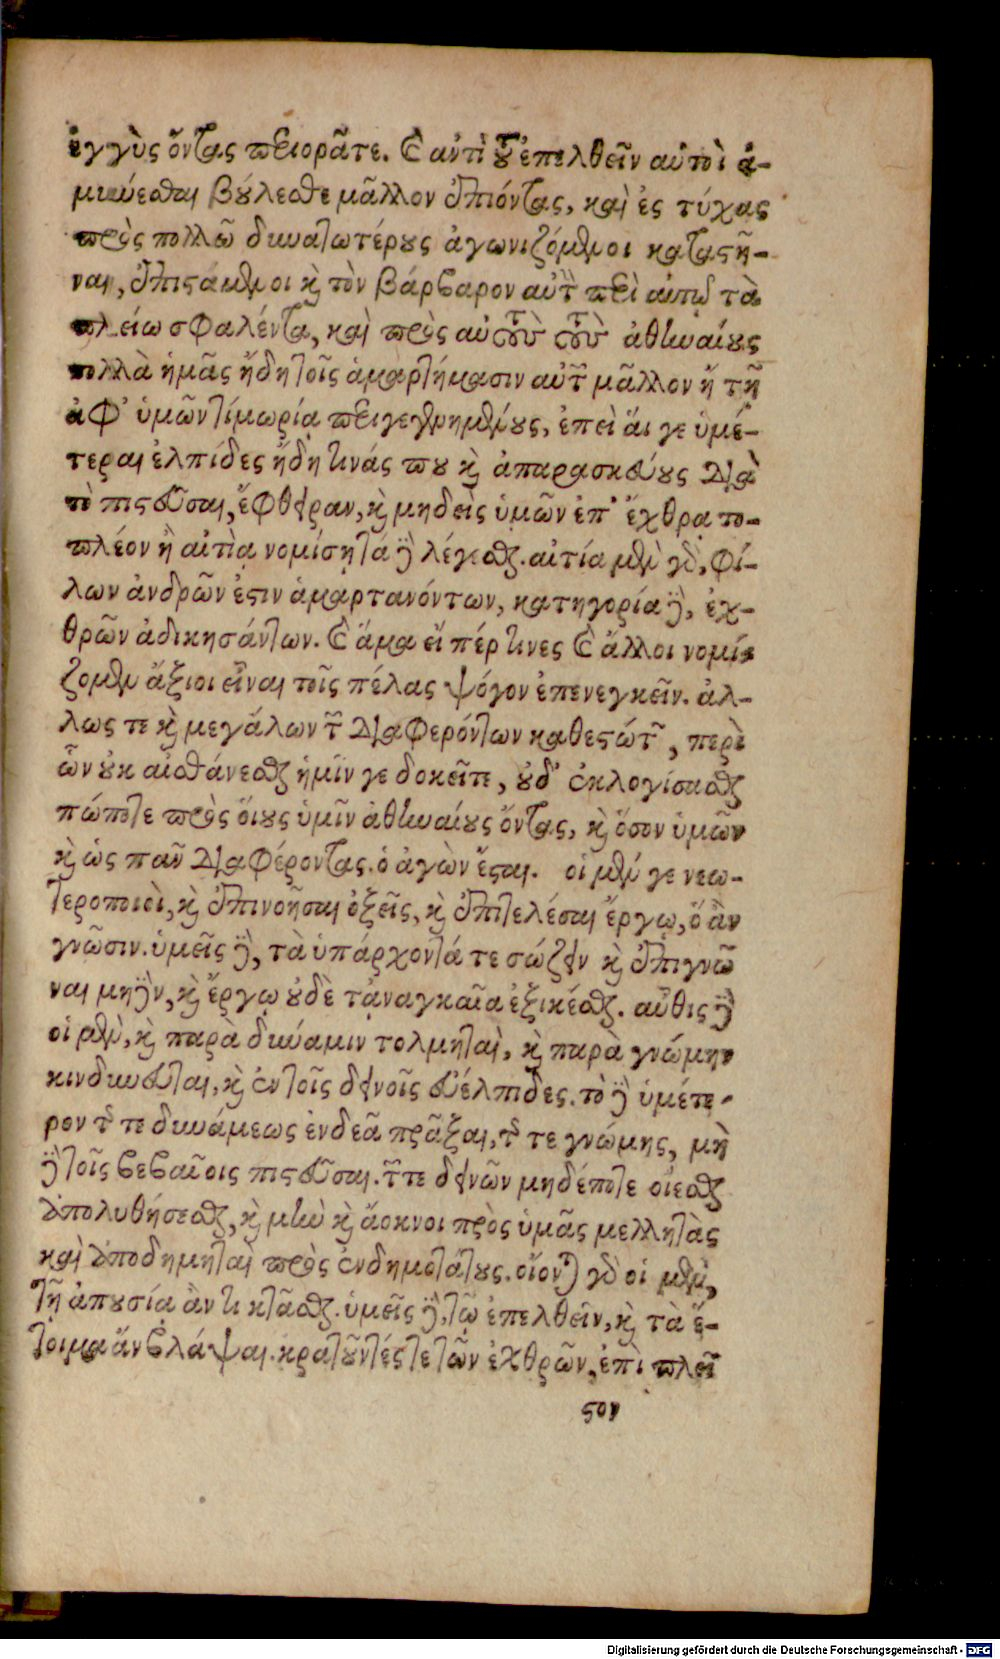 ἐγγὺς ὄντας περιορᾶτε. καὶ ἀντὶ τοῦ ἐπελθεῖν αὐτοὶ ἀ-
μύνεσθαι βούλεσθε μᾶλλον ἐπιόντας, καὶ ἐς τύχας
πρὸς πολλῷ δυνατωτέρους ἀγωνιζόμενοι καταστῆ-
ναι, ἐπιστάμενοι καὶ τὸν βάρβαρον αὐτὸν περὶ αὑτῷ τὰ
πλείω σφαλέντα, καὶ πρὸς αὐτοὺς τοὺς ἀθηναίους
πολλὰ ἡμᾶς ἤδη τοῖς ἁμαρτήμασιν αὐτῶν μᾶλλον ἢ τῇ
ἀφ' ὑμῶν τιμωρίᾳ περιγεγενημένους, ἐπεὶ ἅι γε ὑμέ-
τεραι ἐλπίδες ἤδη τινάς που καὶ ἀπαρασκεύους διὰ
τὸ πιστεῦσαι, ἔφθειραν, καὶ μηδεὶς ὑμῶν ἐπ' ἔχθρᾳ το-
πλέον ἢ αἰτίᾳ νομίσῃ τάδε λέγεσθαι. αἰτία μὲν γὰρ, φί-
λων ἀνδρῶν ἐστιν ἁμαρτανόντων, κατηγορία δὲ, ἐχ-
θρῶν ἀδικησάντων. καὶ ἅμα εἴ πέρ τινες καὶ ἄλλοι νομί-
ζομεν ἄξιοι εἶναι τοῖς πέλας ψόγον ἐπενεγκεῖν. ἀλ-
λως τε καὶ μεγάλων τῶν διαφερόντων καθεστώτων, περὶ
ὧν οὐκ αἰσθάνεσθαι ἡμῖν γε δοκεῖτε, οὐδ' ἐκλογίσασθαι
πώποτε πρὸς ὅιους ὑμῖν ἀθηναίους ὄντας, καὶ ὅσον ὑμῶν
καὶ ὡς πᾶν διαφέροντας. ὁ ἀγὼν ἔσται. οἱ μέν γε νεω-
τεροποιοὶ, καὶ ἐπινοῆσαι ὀξεῖς, καὶ ἐπιτελέσαι ἔργῳ, ὅ ἂν
γνῶσιν. ὑμεῖς δὲ, τὰ ὑπάρχοντά τε σώζειν καὶ ἐπιγνῶ
ναι μηδὲν, καὶ ἔργῳ οὐδὲ τἀναγκαῖα ἐξικέσθαι. αὖθις δὲ
οἱ μὲν, καὶ παρὰ δύναμιν τολμηταὶ, καὶ παρὰ γνώμην
κινδυνευταὶ, καὶ ἐν τοῖς δεινοῖς εὐέλπιδες. τὸ δὲ ὑμέτε-
ρον τῆς τε δυνάμεως ἐνδεᾶ πρᾶξαι, τῆς τε γνώμης, μὴ
δὲ τοῖς βεβαίοις πιστεῦσαι. τῶν τε δεινῶν μηδέποτε οἴεσθαι
ἀπολυθήσεσθαι, καὶ μὴν καὶ ἄοκνοι πρὸς ὑμᾶς μελλητὰς
καὶ ἀποδημηταὶ πρὸς ἐνδημοτάτους. οἴονται γὰρ οἱ μὲν,
τῇ ἀπουσίᾳ ἄν τι κτᾶσθαι. ὑμεῖς δὲ, τῷ ἐπελθεῖν, καὶ τὰ ἕ-
τοιμα ἂν βλάψαι. κρατοῦντές τε τῶν ἐχθρῶν, ἐπὶ πλεῖ
στον
Digitalisierung gefördert durch die Deutsche Forschungsgemeinschaft - DFG